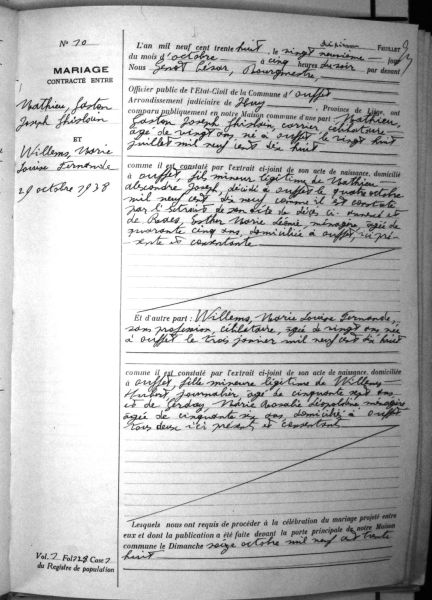 N° 70
MARIAGE
CONTRACTÉ ENTRE
Mathieu, Gaston
Joseph Ghislain
ET
Willems, Marie
Louise Fernande
29 octobre 1938
Vol. 7 Fol 728 Case 7
du Registre de population
FEUILLET
L'an mil neuf cent trente huit, le vingt neuvième jour
du mois d'octobre à cinq heures du soir par devant
Nous Genot César, Bourgmestre,
Officier public de l'Etat-Civil de la Commune d'Ouffet
Arrondissement judiciaire de Huy, Province de Liége, ont
comparu publiquement en notre Maison commune d'une part Mathieu,
Gaston Joseph Ghislain, célibataire
âgé de vingt ans né à Ouffet le vingt huit
juillet mil neuf cent dix huit
comme il est constaté par l'extrait ci-joint de son acte de naissance, domicilié
à Ouffet, fils mineur légitime de Mathieu
Alexandre Joseph, décédé à Ouffet le quatre octobre
mil neuf cent dix neuf, comme il est constaté
par l'extrait de son acte de décès ci-annexé et
de Esther Marie Léonie, ménagère, âgée de
quarante cinq ans, domiciliée à Ouffet, ici pré-
sente et consentante
Et d'autre part : Willems, Marie Louise Fernande,
sans profession, célibataire, âgée de vingt ans née
à Ouffet le trois janvier mil neuf cent dix huit
comme il est constaté par l'extrait ci-joint de son acte de naissance, domiciliée
à Ouffet, fille mineure légitime de Willems
Hubert, journalier, âgé de cinquante sept ans
et de Marie Rosalie Léopoldine, ménagère
âgée de cinquante six ans domiciliés à Ouffet
tous deux ici présents et consentants
Lesquels nous ont requis de procéder à la célébration du mariage projeté entre
eux et dont la publication a été faite devant la porte principale de notre Maison
commune le Dimanche seize octobre mil neuf cent trente
huit